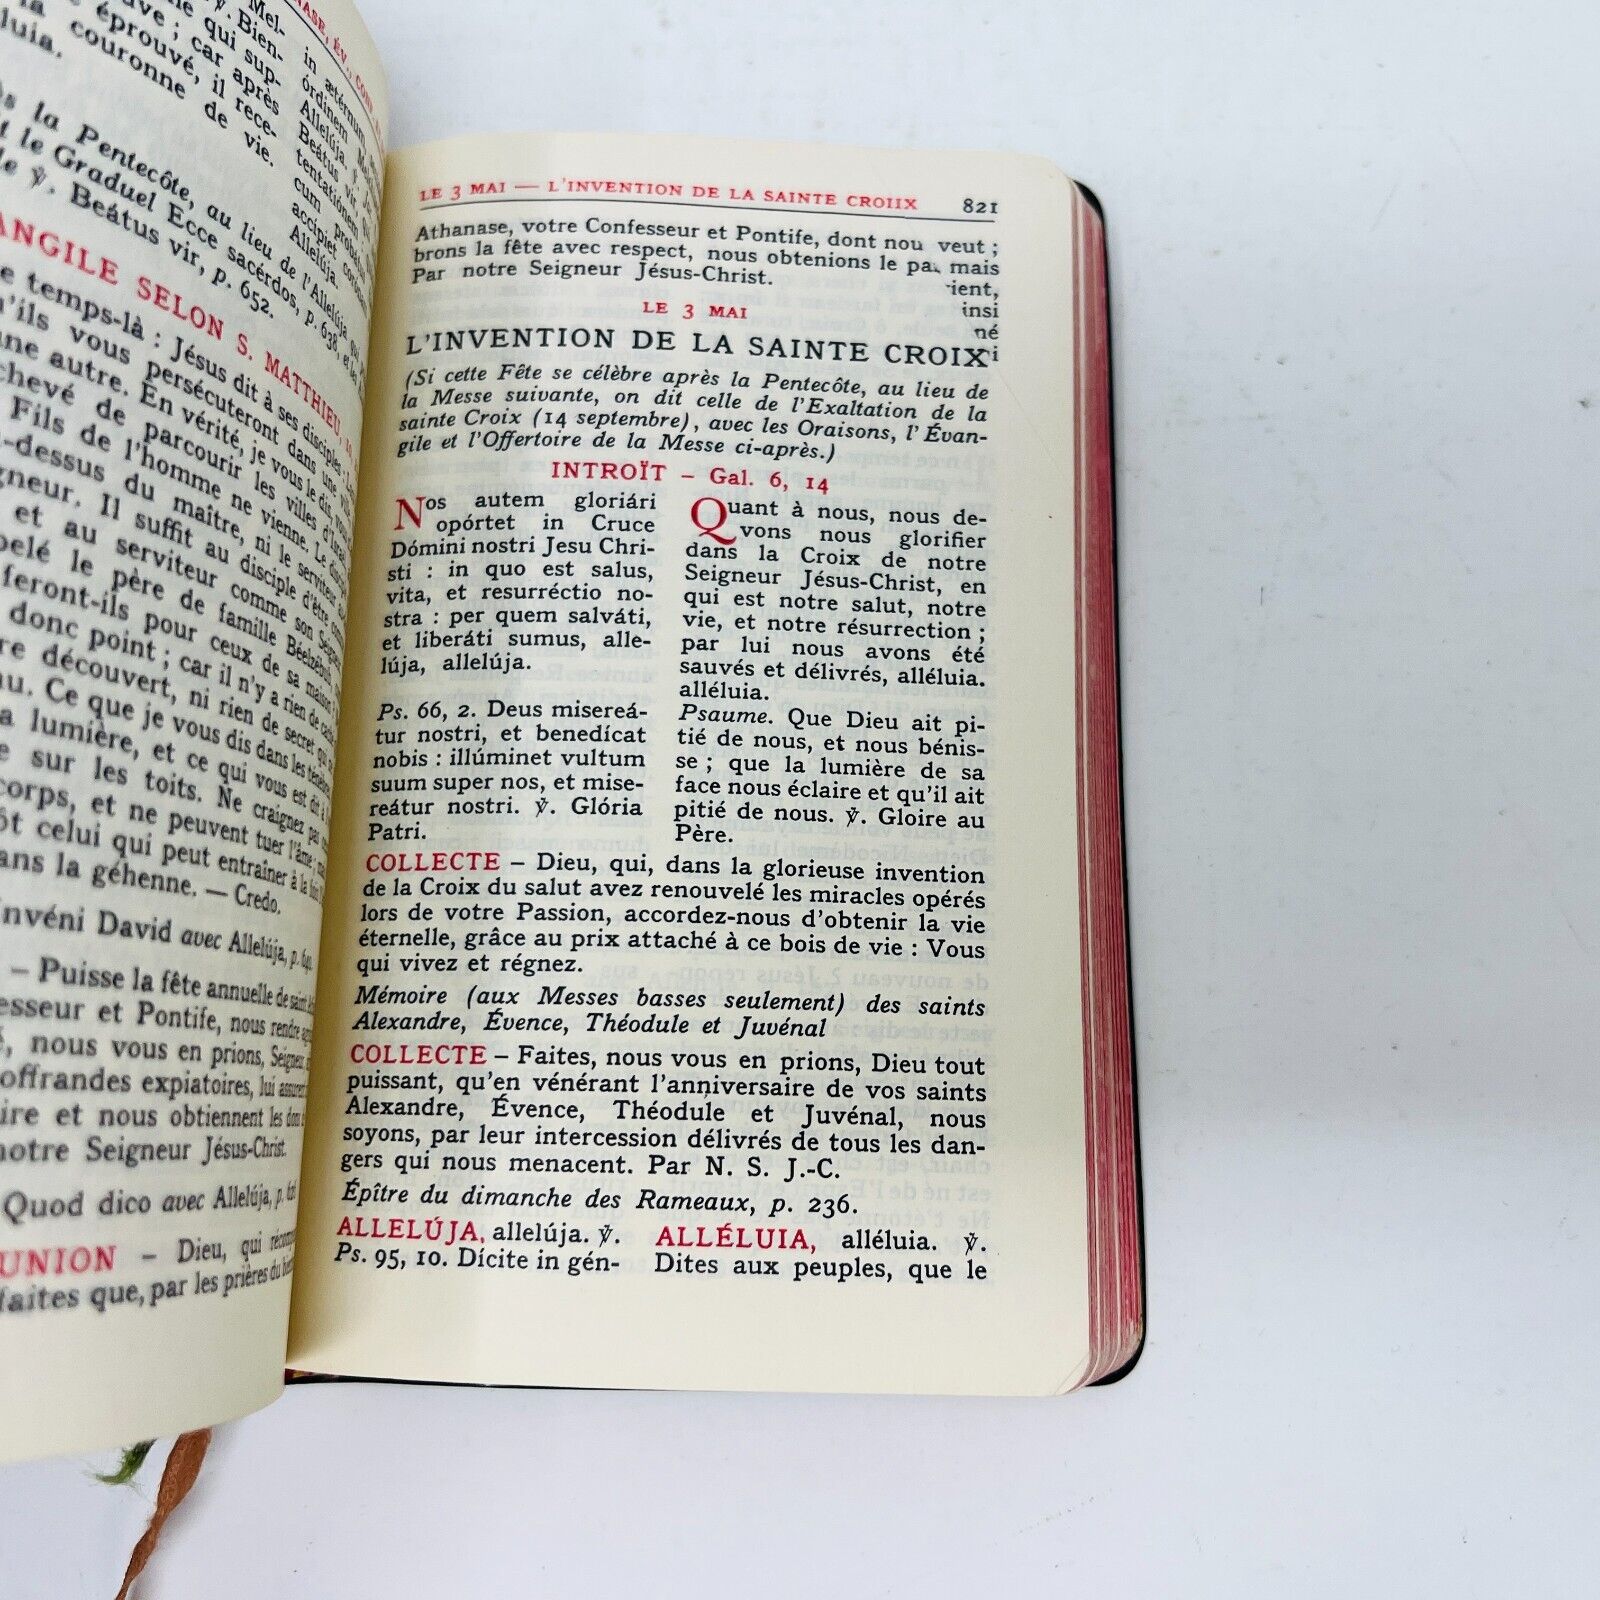 Mel-
℣. Bien-
ne qui sup-
ve ; car après
éprouvé, il rece-
couronne de vie.
luia.
in ætérnum
órdinem
Allelúja. ℣.
Beátus vir,
tentatiónem
cum probátus
accípiet
Allelúja.
la Pentecôte, au lieu de l'Allelúja
le Graduel Ecce sacérdos, p. 638, et
℣. Beátus vir, p. 652.
ANGILE SELON S. MATTHIEU, 10,
temps-là : Jésus dit à ses disciples :
qu'ils vous persécuteront dans une
une autre. En vérité, je vous le dis, vous
chevé de parcourir les villes d'Israël
Fils de l'homme ne vienne. Le disciple
-dessus du maître, ni le serviteur au
gneur. Il suffit au disciple d'être comme
et au serviteur comme son Seigneur
pelé le père de famille Béelzébub,
feront-ils pour ceux de sa maison !
donc point ; car il n'y a rien de caché
re découvert, ni rien de secret qui
u. Ce que je vous dis dans les ténèbres
a lumière, et ce qui vous est dit à
sur les toits. Ne craignez pas
corps, et ne peuvent tuer l'âme ;
ôt celui qui peut entraîner à la fois
ans la géhenne. — Credo.
Invéni David avec Allelúja, p.
– Puisse la fête annuelle de saint
esseur et Pontife, nous rendre
, nous vous en prions, Seigneur,
offrandes expiatoires, lui
ire et nous obtiennent les dons
notre Seigneur Jésus-Christ.
Quod dico avec Allelúja, p.
UNION – Dieu, qui
faites que, par les prières du
LE 3 MAI — L'INVENTION DE LA SAINTE CROIIX 821
Athanase, votre Confesseur et Pontife, dont nou veut ;
brons la fête avec respect, nous obtenions le pa mais
Par notre Seigneur Jésus-Christ. rient,
insi
né
LE 3 MAI
L'INVENTION DE LA SAINTE CROIX
(Si cette Fête se célèbre après la Pentecôte, au lieu de
la Messe suivante, on dit celle de l'Exaltation de la
sainte Croix (14 septembre), avec les Oraisons, l'Évan-
gile et l'Offertoire de la Messe ci-après.)
INTROÏT – Gal. 6, 14
Nos autem gloriári
opórtet in Cruce
Dómini nostri Jesu Chri-
sti : in quo est salus,
vita, et resurréctio no-
stra : per quem salváti,
et liberáti sumus, alle-
lúja, allelúja.
Ps. 66, 2. Deus misereá-
tur nostri, et benedícat
nobis : illúminet vultum
suum super nos, et mise-
reátur nostri. ℣. Glória
Patri.
Quant à nous, nous de-
vons nous glorifier
dans la Croix de notre
Seigneur Jésus-Christ, en
qui est notre salut, notre
vie, et notre résurrection ;
par lui nous avons été
sauvés et délivrés, alléluia.
alléluia.
Psaume. Que Dieu ait pi-
tié de nous, et nous bénis-
se ; que la lumière de sa
face nous éclaire et qu'il ait
pitié de nous. ℣. Gloire au
Père.
COLLECTE – Dieu, qui, dans la glorieuse invention
de la Croix du salut avez renouvelé les miracles opérés
lors de votre Passion, accordez-nous d'obtenir la vie
éternelle, grâce au prix attaché à ce bois de vie : Vous
qui vivez et régnez.
Mémoire (aux Messes basses seulement) des saints
Alexandre, Évence, Théodule et Juvénal
COLLECTE – Faites, nous vous en prions, Dieu tout
puissant, qu'en vénérant l'anniversaire de vos saints
Alexandre, Évence, Théodule et Juvénal, nous
soyons, par leur intercession délivrés de tous les dan-
gers qui nous menacent. Par N. S. J.-C.
Épître du dimanche des Rameaux, p. 236.
ALLELÚJA, allelúja. ℣.
Ps. 95, 10. Dícite in gén-
ALLÉLUIA, alléluia. ℣.
Dites aux peuples, que le